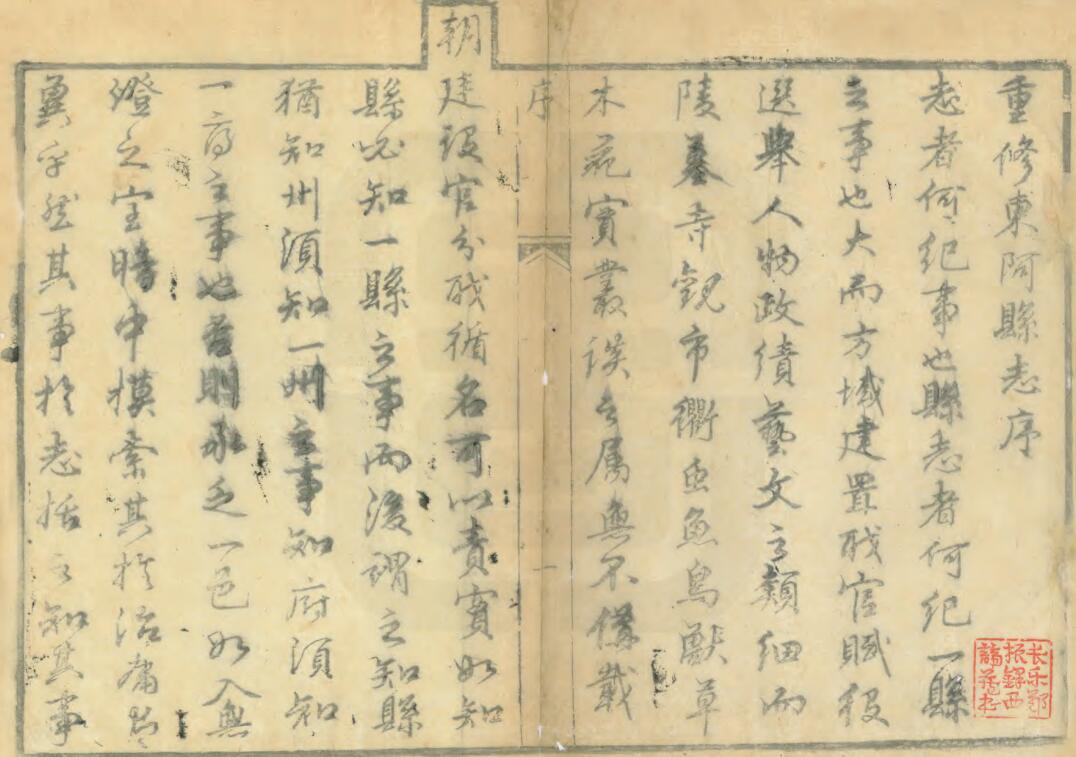 重修東阿縣志序
志者何紀事也縣志者何紀一縣
之事也大而方域建置職官賦役
選舉人物政績藝文之類細而
陵墓寺觀市衢虫魚鳥獸草
木蓏實叢談之属無不備載
序
一
朝
廷設官分職循名可以責實如知
縣必知一縣之事而後謂之知縣
猶知州須知一州之事知府須知
一府之事也否則承乏一邑如入無
燈之室暗中摸索其於治庸
冀乎然其事於志括之知其事
长乐郑
振鐸西
諦藏书